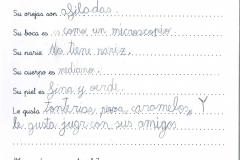 Su orejas son afiladas.
Su boca es como un microscopio
Su nariz No tiene nariz.
Su cuerpo es mediano.
Su piel es fina y verde.
Le gusta tonterias, pizza caramelos, Y
le gusta jugar con sus amigos